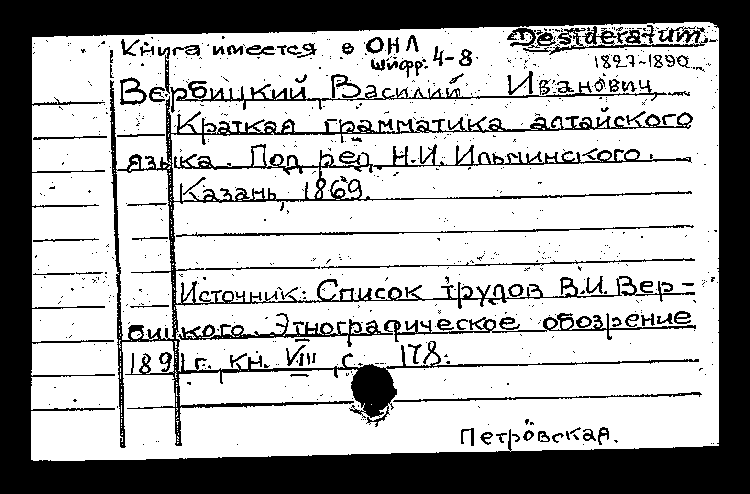 Книга имеется в ОНЛ
шифр: 4-8
Desideratum
1827-1890
Вербицкий, Василий Иванович,
Краткая грамматика алтайского
языка. Под ред. Н.И. Ильминского.
Казань, 1869.
Источник: Список трудов В.И. Вер-
бицкого. Этнографическое обозрение
1891г., кн. VIII, с. 178.
Петровская.